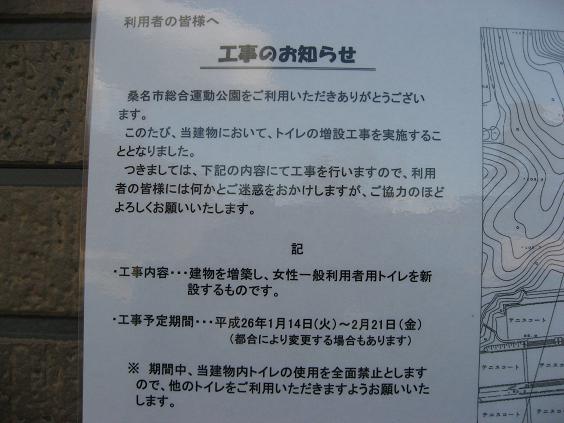 利用者の皆様へ
工事のお知らせ
桑名市総合運動公園をご利用いただきありがとうござい
ます。
このたび、当建物において、トイレの増設工事を実施するこ
ととなりました。
つきましては、下記の内容にて工事を行いますので、利用
者の皆様には何かとご迷惑をおかけしますが、ご協力のほど
よろしくお願いいたします。
記
・工事内容・・・建物を増築し、女性一般利用者用トイレを新
設するものです。
・工事予定期間・・・平成26年1月14日(火)～2月21日(金)
(都合により変更する場合もあります)
※ 期間中、当建物内トイレの使用を全面禁止としますし
ので、他のトイレをご利用いただきますようお願いいた
します。
テニスコート
テニスコート
テニスコート
テニスコート